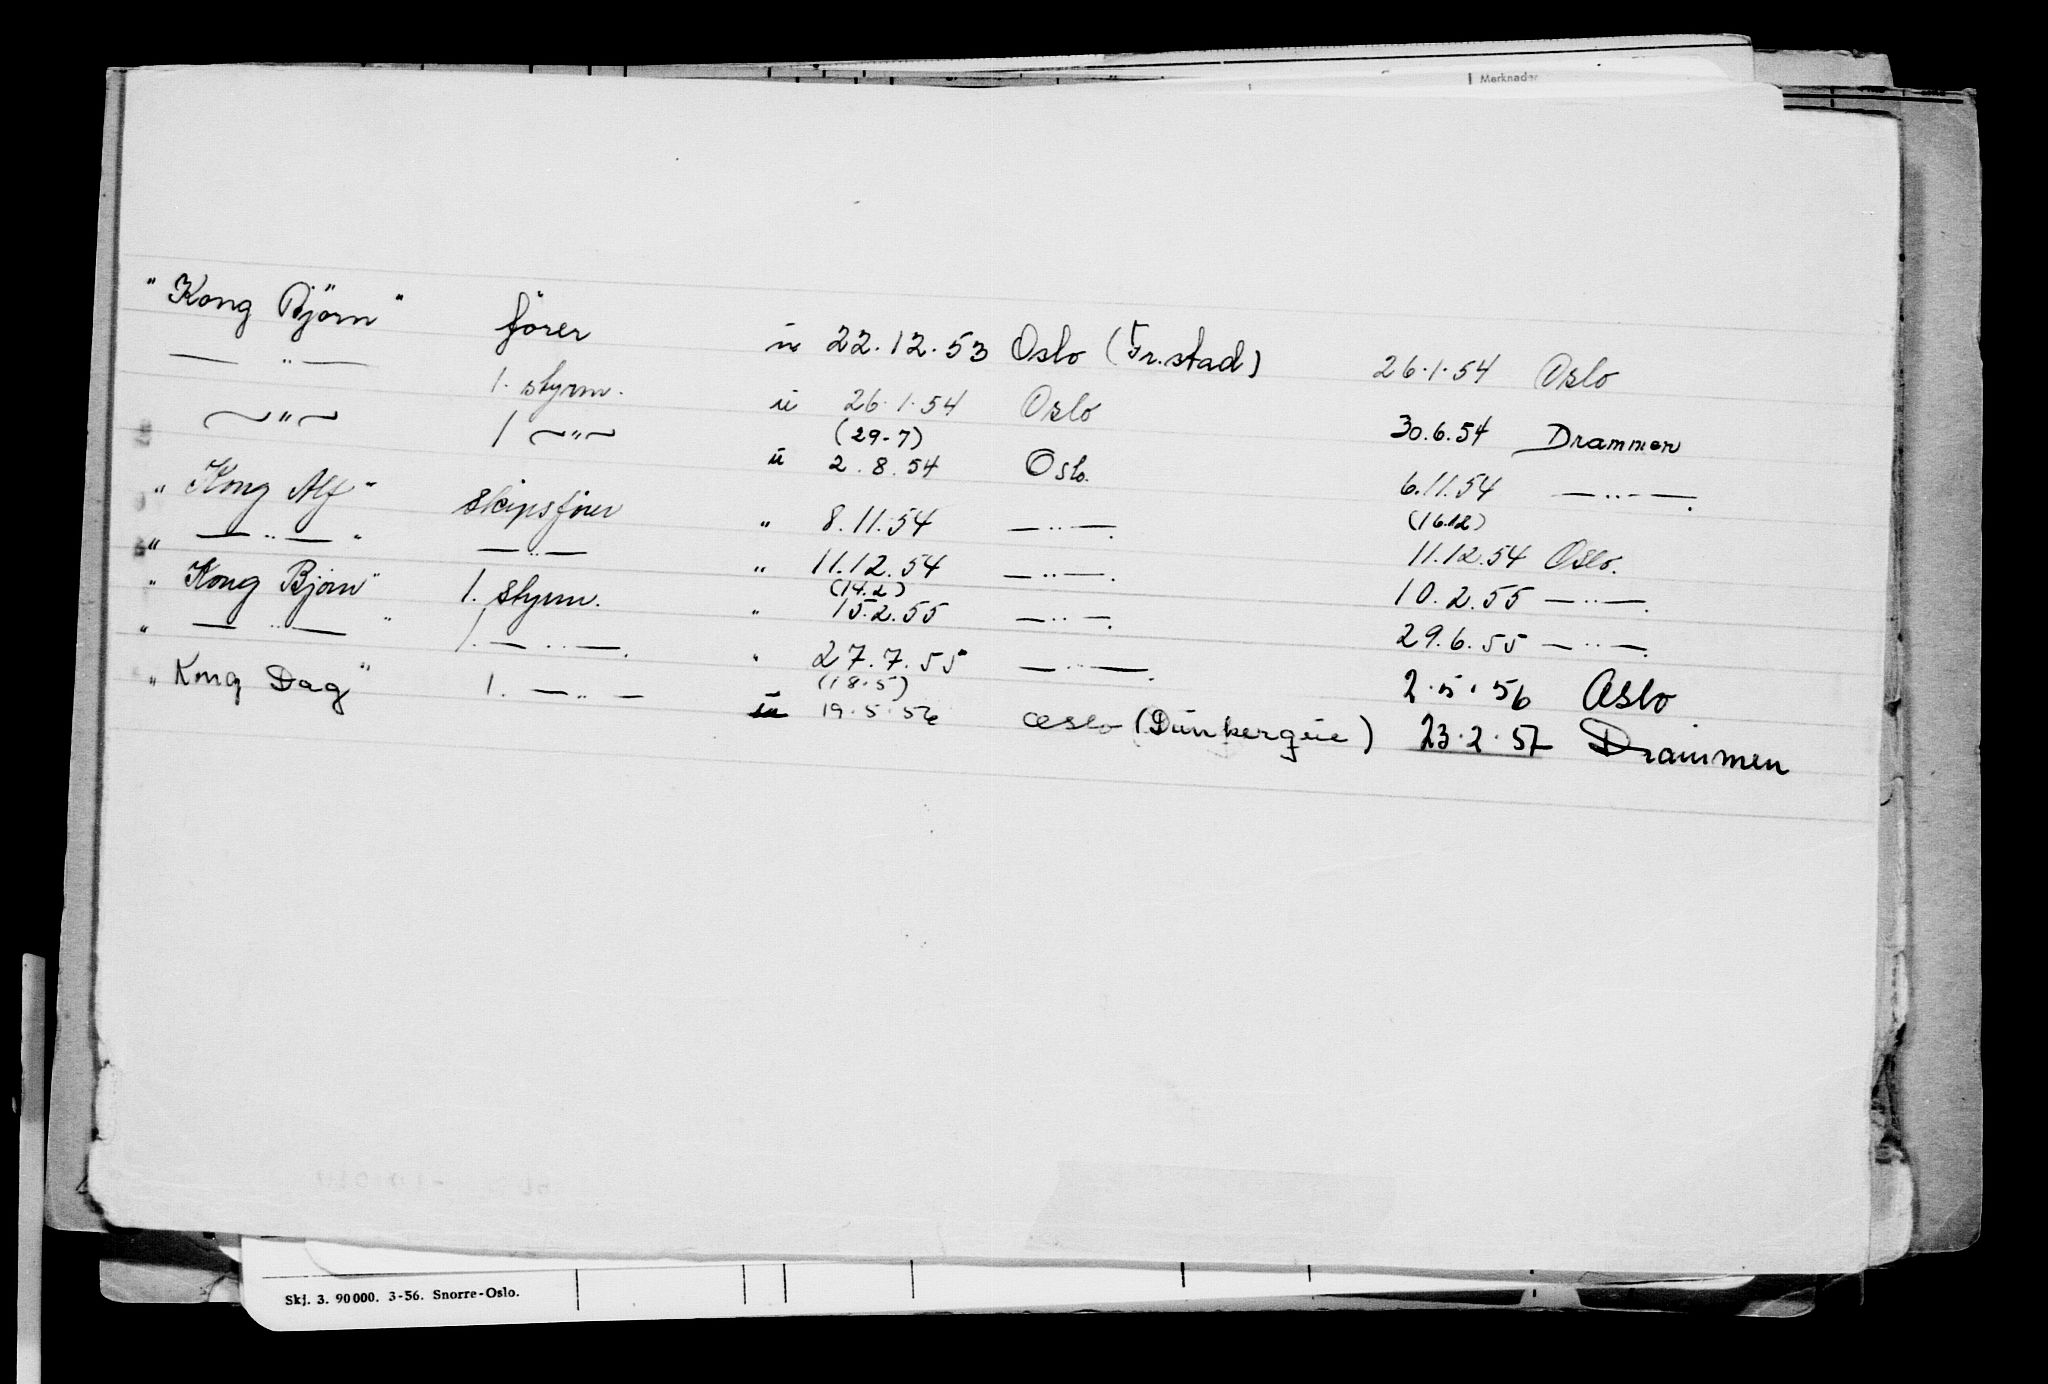 Merknader
"Kong Björn" förer u 22.12.53 Oslo (Fr.stad) 26.1.54 Oslo
— " — 1. styrm. u 26.1.54 Oslo 30.6.54 Drammen
— " — 1 — " — (29-7) u 2.8.54 Oslo. 6.11.54 — " —.
"Kong Alf" skipsfører " 8.11.54 — " —. (16.12) 11.12.54 Oslo.
" — " — " — " — " 11.12.54 — " —. 10.2.55 — " —.
"Kong Bjørn" 1. styrm. " (14.2) 15.2.55 — " —. 29.6.55 — " —.
" — " — " 1. — " —. " 27.7.55 — " —. 2.5.56 Oslo
"Kong Dag" 1. — " — u (18.5) 19.5.56 Oslo (Dünkerqüe) 23.2.57 Drammen
Skj. 3. 90000. 3-56. Snorre-Oslo.